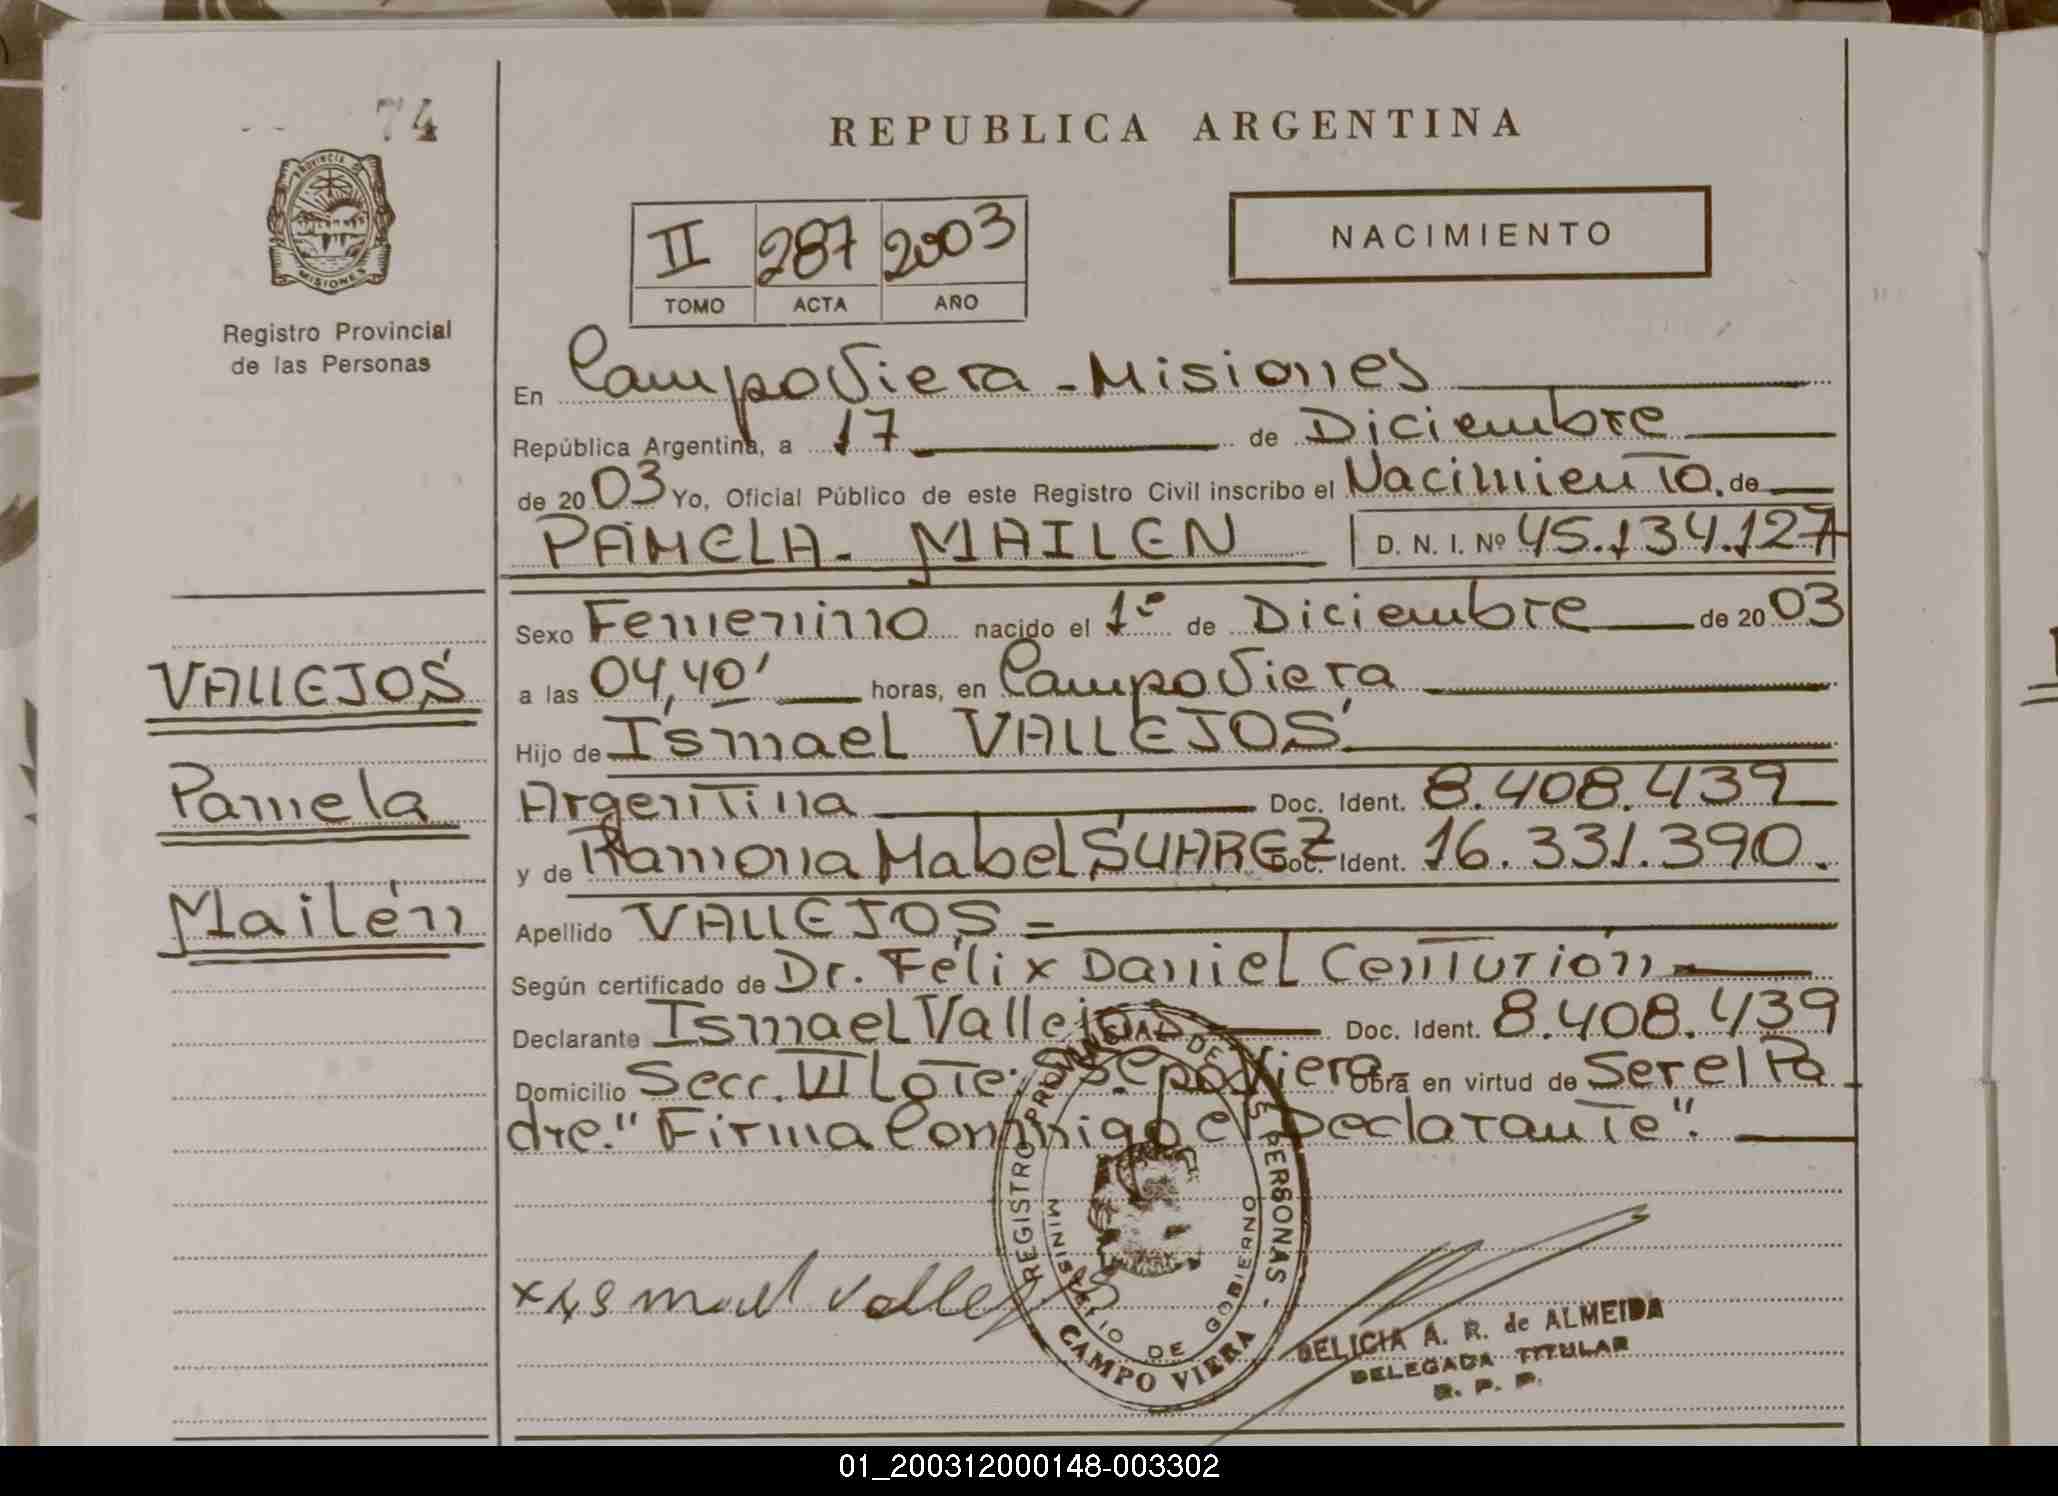 74
REPUBLICA ARGENTINA
PROVINCIA DE
MISIONES
Registro Provincial
de las Personas
II 287 2003
TOMO ACTA AÑO
NACIMIENTO
En Campo Viera - Misiones
República Argentina, a 17 de Diciembre
de 2003 Yo, Oficial Público de este Registro Civil inscribo el Nacimiento. de
PAMELA - MAILEN D. N. I. Nº 45.134.127
Sexo Femenino nacido el 1º de Diciembre de 2003
VALLEJOS
a las 04,40' horas, en Campo Viera
Hijo de Ismael VALLEJOS
Pamela
Argentina Doc. Ident. 8.408.439
y de Ramona Mabel SUAREZ Doc. Ident. 16.331.390.
Mailén
Apellido VALLEJOS =
Según certificado de Dr. Félix Daniel Centurión
Declarante Ismael Vallejos Doc. Ident. 8.408.439
Domicilio Secc. VII Lote Viera Obra en virtud de Ser el Pa
dre." Firma Conmigo el Declarante".
REGISTRO PROVINCIAL DE LAS PERSONAS -
MINISTERIO DE GOBIERNO
CAMPO VIERA
x Ismael Vallejos
DELICIA A. R. de ALMEIDA
DELEGADA TITULAR
R. P. P.
01_200312000148-003302